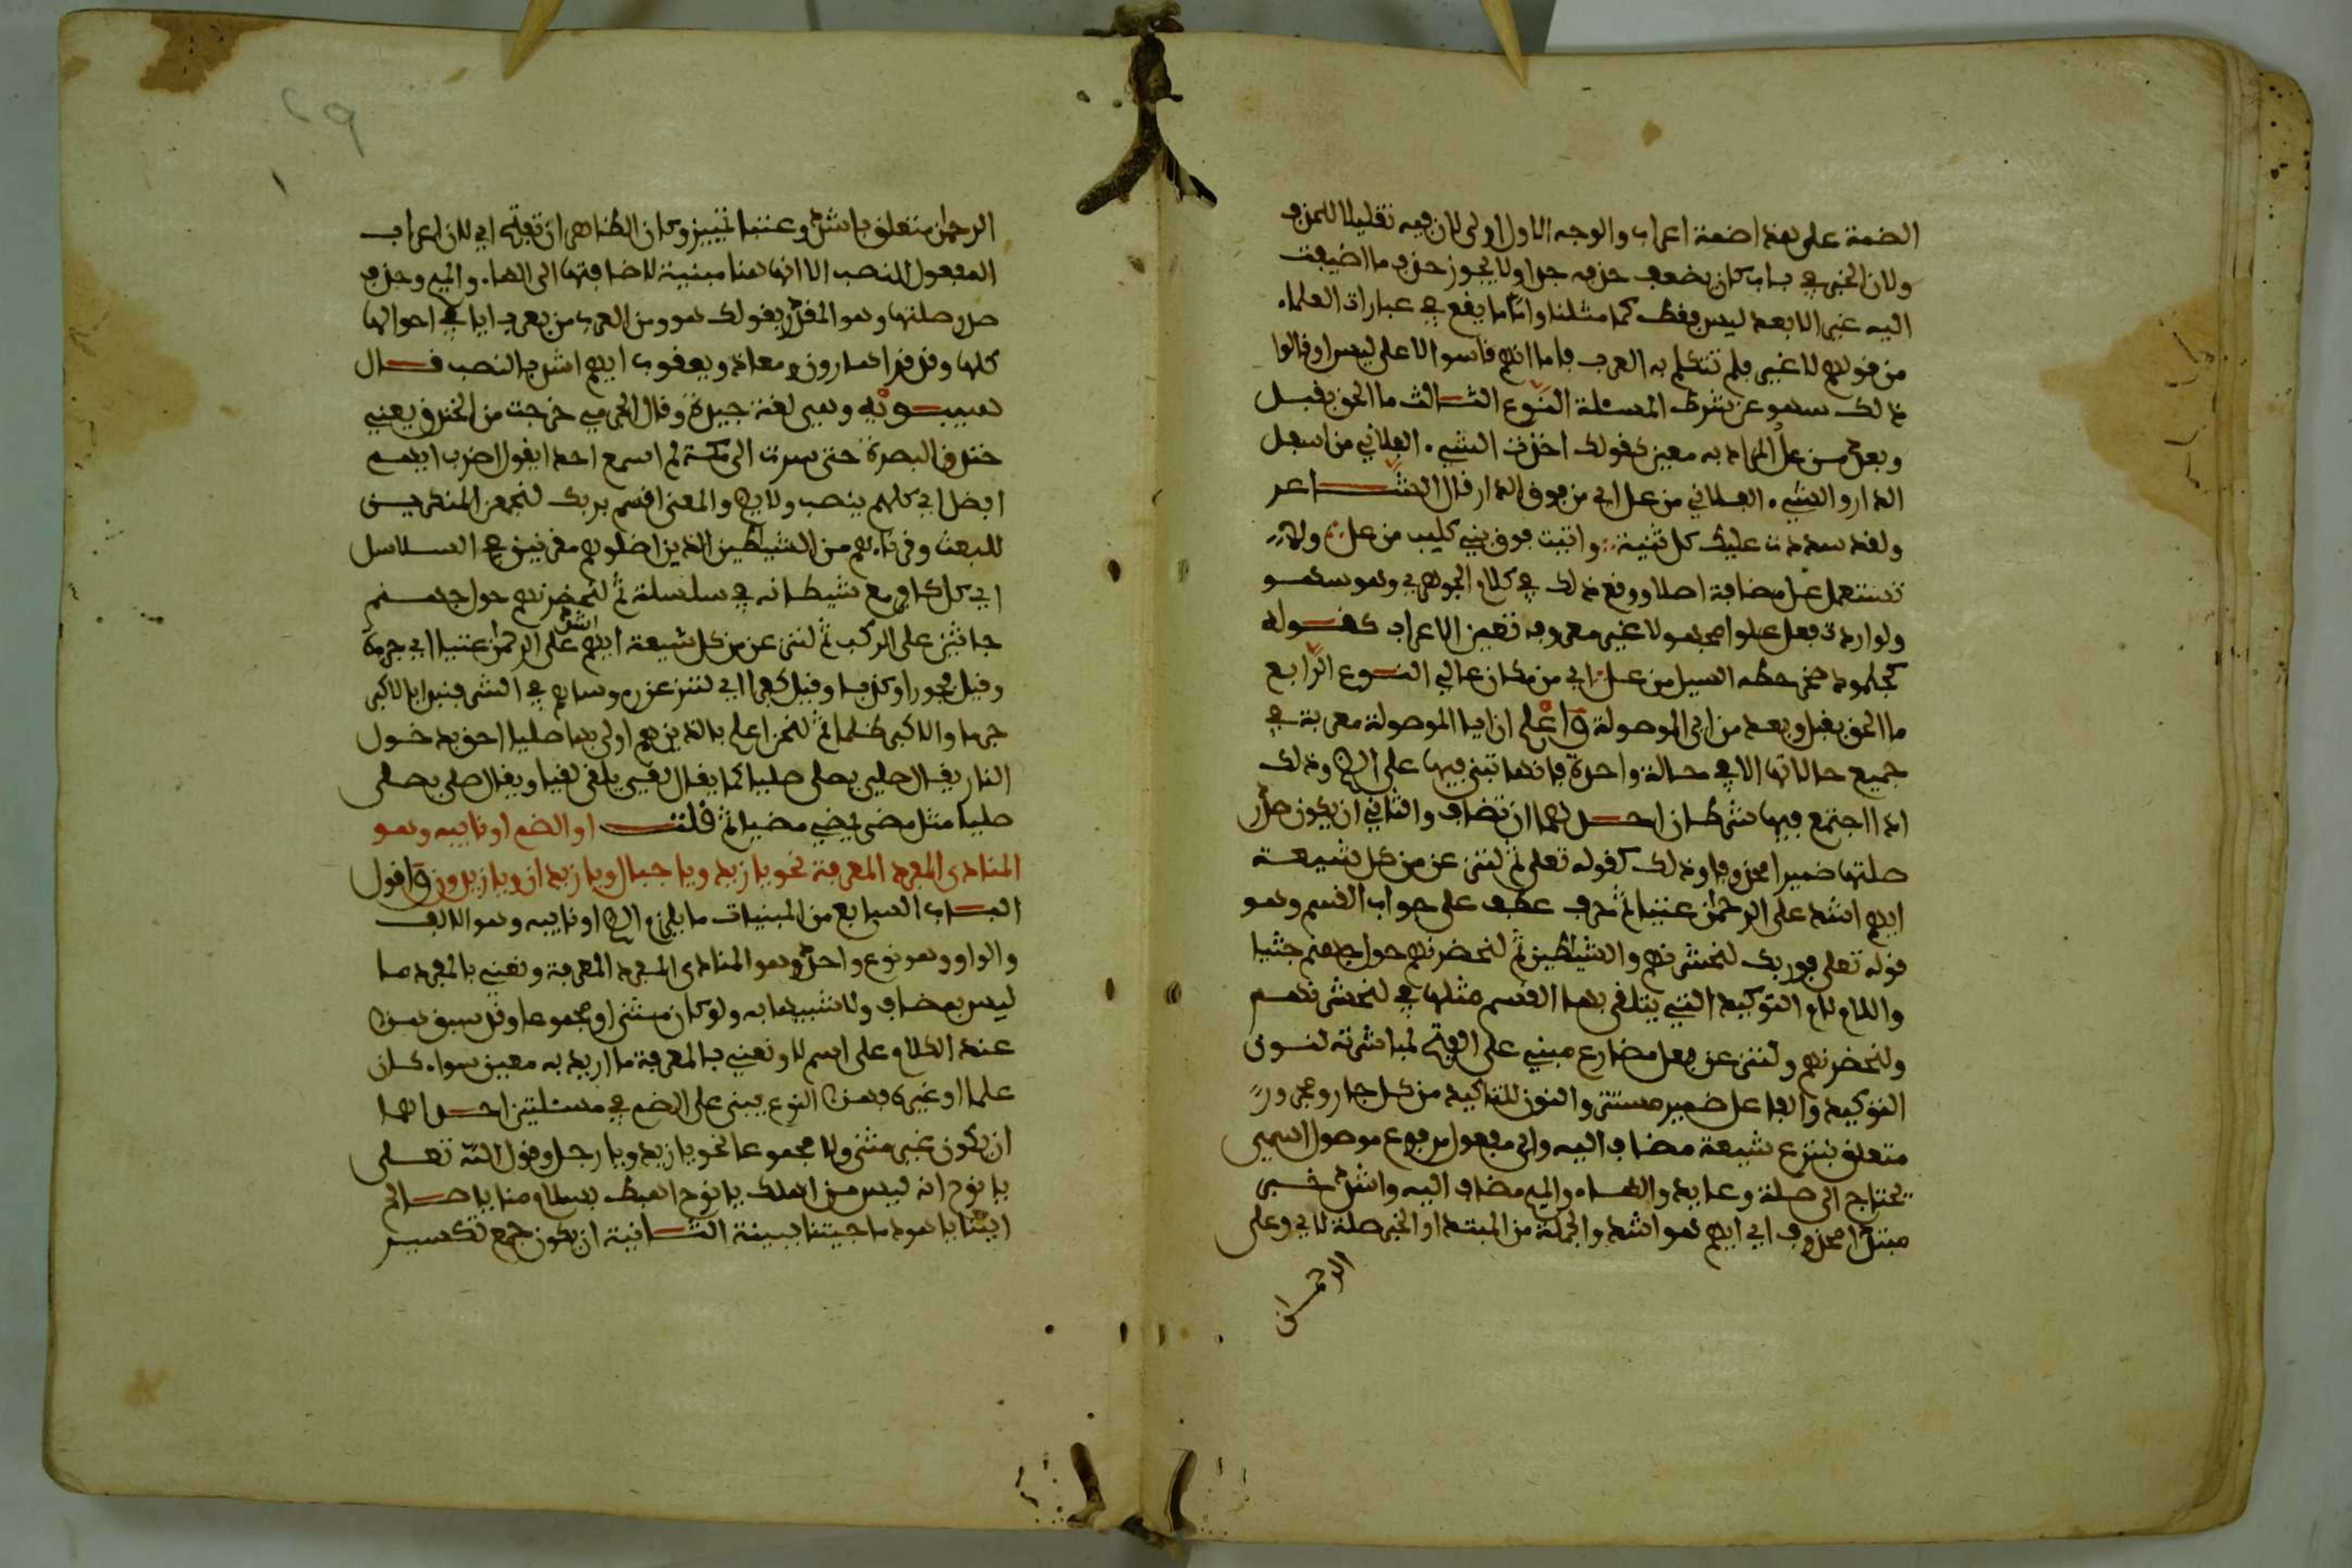 الضمة على هذا ضمة اعراب والوجه الاول اولى لان فيه تقليلا للحذف
ولان الخبر في باب كان يضعف حذفه جدا ولا يجوز حذف ما اضيفت
اليه غير الا بعد ليس فقط كما مثلنا واما ما يقع في عبارات العلماء
من قولهم لا غير فلم تتكلم به العرب فاما انهم قاسوا لا على ليس او قالوا
ذلك سهوا عن شرط المسئلة النوع الثالث ما الحق بقبل
وبعد من عل المراد به معين كقولك اخذت الشيء الفلاني من اسفل
الدار والشيء الفلاني من عل اي من فوق الدار قال الشاعر
ولقد سددت عليك كل ثنية واتيت فوق بني كليب من عل ولا
تستعمل عل مضافة اصلا ووقع ذلك في كلام الجوهري وهو سهو
ولو اردت بعل علوا مجهولا غير معروف تعين الاعراب كقوله
كجلمود صخر حطه السيل من عل اي من مكان عالي النوع الرابع
ما الحق بقبل وبعد من اي الموصولة واعلم ان ايا الموصولة معربة في
جميع حالاتها الا في حالة واحدة فانها تبنى فيها على الضم وذلك
اذا اجتمع فيها شرطان احدهما ان تضاف والثاني ان يكون صدر
صلتها ضميرا محذوفا وذلك كقوله تعلى ثم لننزعن من كل شيعة
ايهم اشد على الرحمن عتيا ثم حرف عطف على جواب القسم وهو
قوله تعلى فوربك لنحشرنهم والشيطين ثم لنحضرنهم حول جهنم جثيا
واللام لام التوكيد التي يتلقى بها القسم مثلها في لنحشرنهم
ولنحضرنهم ولننزعن فعل مضارع مبني على الفتح لمباشرته لنون
التوكيد والفاعل ضمير مستتر والنون للتاكيد من كل جار ومجرور
متعلق بننزع شيعة مضاف اليه واي مفعول مرفوع موصول اسمي
تحتاج الى صلة وعايد والهاء والميم مضاف اليه واشد خبر
مبتدا محذوف اي ايهم هو اشد والجملة من المبتدا والخبر صلة لاي وعلى
الرحمن
الرحمن متعلق باشد وعتيا تمييز وكان الظاهر ان تفتح اي لان اعراب
المفعول النصب الا انها هنا مبنية لاضافتها الى الهاء والميم وحذف
صدر صلتها وهو المقدر بقولك هو ومن العرب من يعرب ايا في احوالها
كلها وقد قرا هارون ومعاذ ويعقوب ايهم اشد بالنصب قال
سيبويه وهي لغة جيدة وقال الجرمي خرجت من الخندق يعني
خندق البصرة حتى صرت الى مكة لم اسمع احدا يقول اضرب ايهم
افضل اي كلهم ينصب ولا يضم والمعنى اقسم بربك لنجمعن المنكرين
للبعث وقرناءهم من الشيطين الذين اضلوهم مقرنين في السلاسل
اي كل كافر مع شيطانه في سلسلة ثم لنحضرنهم حول جهنم
جاثين على الركب ثم لننزعن من كل شيعة ايهم اشد على الرحمن عتيا اي جرءة
وقيل فجورا وكذبا وقيل كفرا اي لننزعن رءوساءهم في الشر فنبدا بالاكبر
جرما والاكبر ظلما ثم لنحن اعلم بالذين هم اولى بها صليا احق بدخول
النار يقال صلي يصلى صليا كما يقال لقي يلقى لقيا ويقال صلى يصلي
صليا مثل مضى يمضي مضيا ثم قلت او الضم او نايبه وهو
المنادى المفرد المعرفة نحو يا زيد ويا جبال ويا زيدان ويا زيدون واقول
الباب السابع من المبنيات ما يلزم الضم او نايبه وهو الالف
والواو وهو نوع واحد وهو المنادى المفرد المعرفة ونعني بالمفرد ما
ليس بمضاف ولا شبيها به ولو كان مثنى او مجموعا وقد سبق هذا
عند الكلام على اسم لا ونعني بالمعرفة ما اريد به معين سواء كان
علما او غيره وهذا النوع يبنى على الضم في مسئلتين احداهما
ان يكون غير مثنى ولا مجموعا نحو يا زيد ويا رجل وقول الله تعلى
يا نوح انه ليس من اهلك يا نوح اهبط بسلام منا يا صالح
ايتنا يا هود ما جيتنا ببينة الثانية ان يكون جمع تكسير